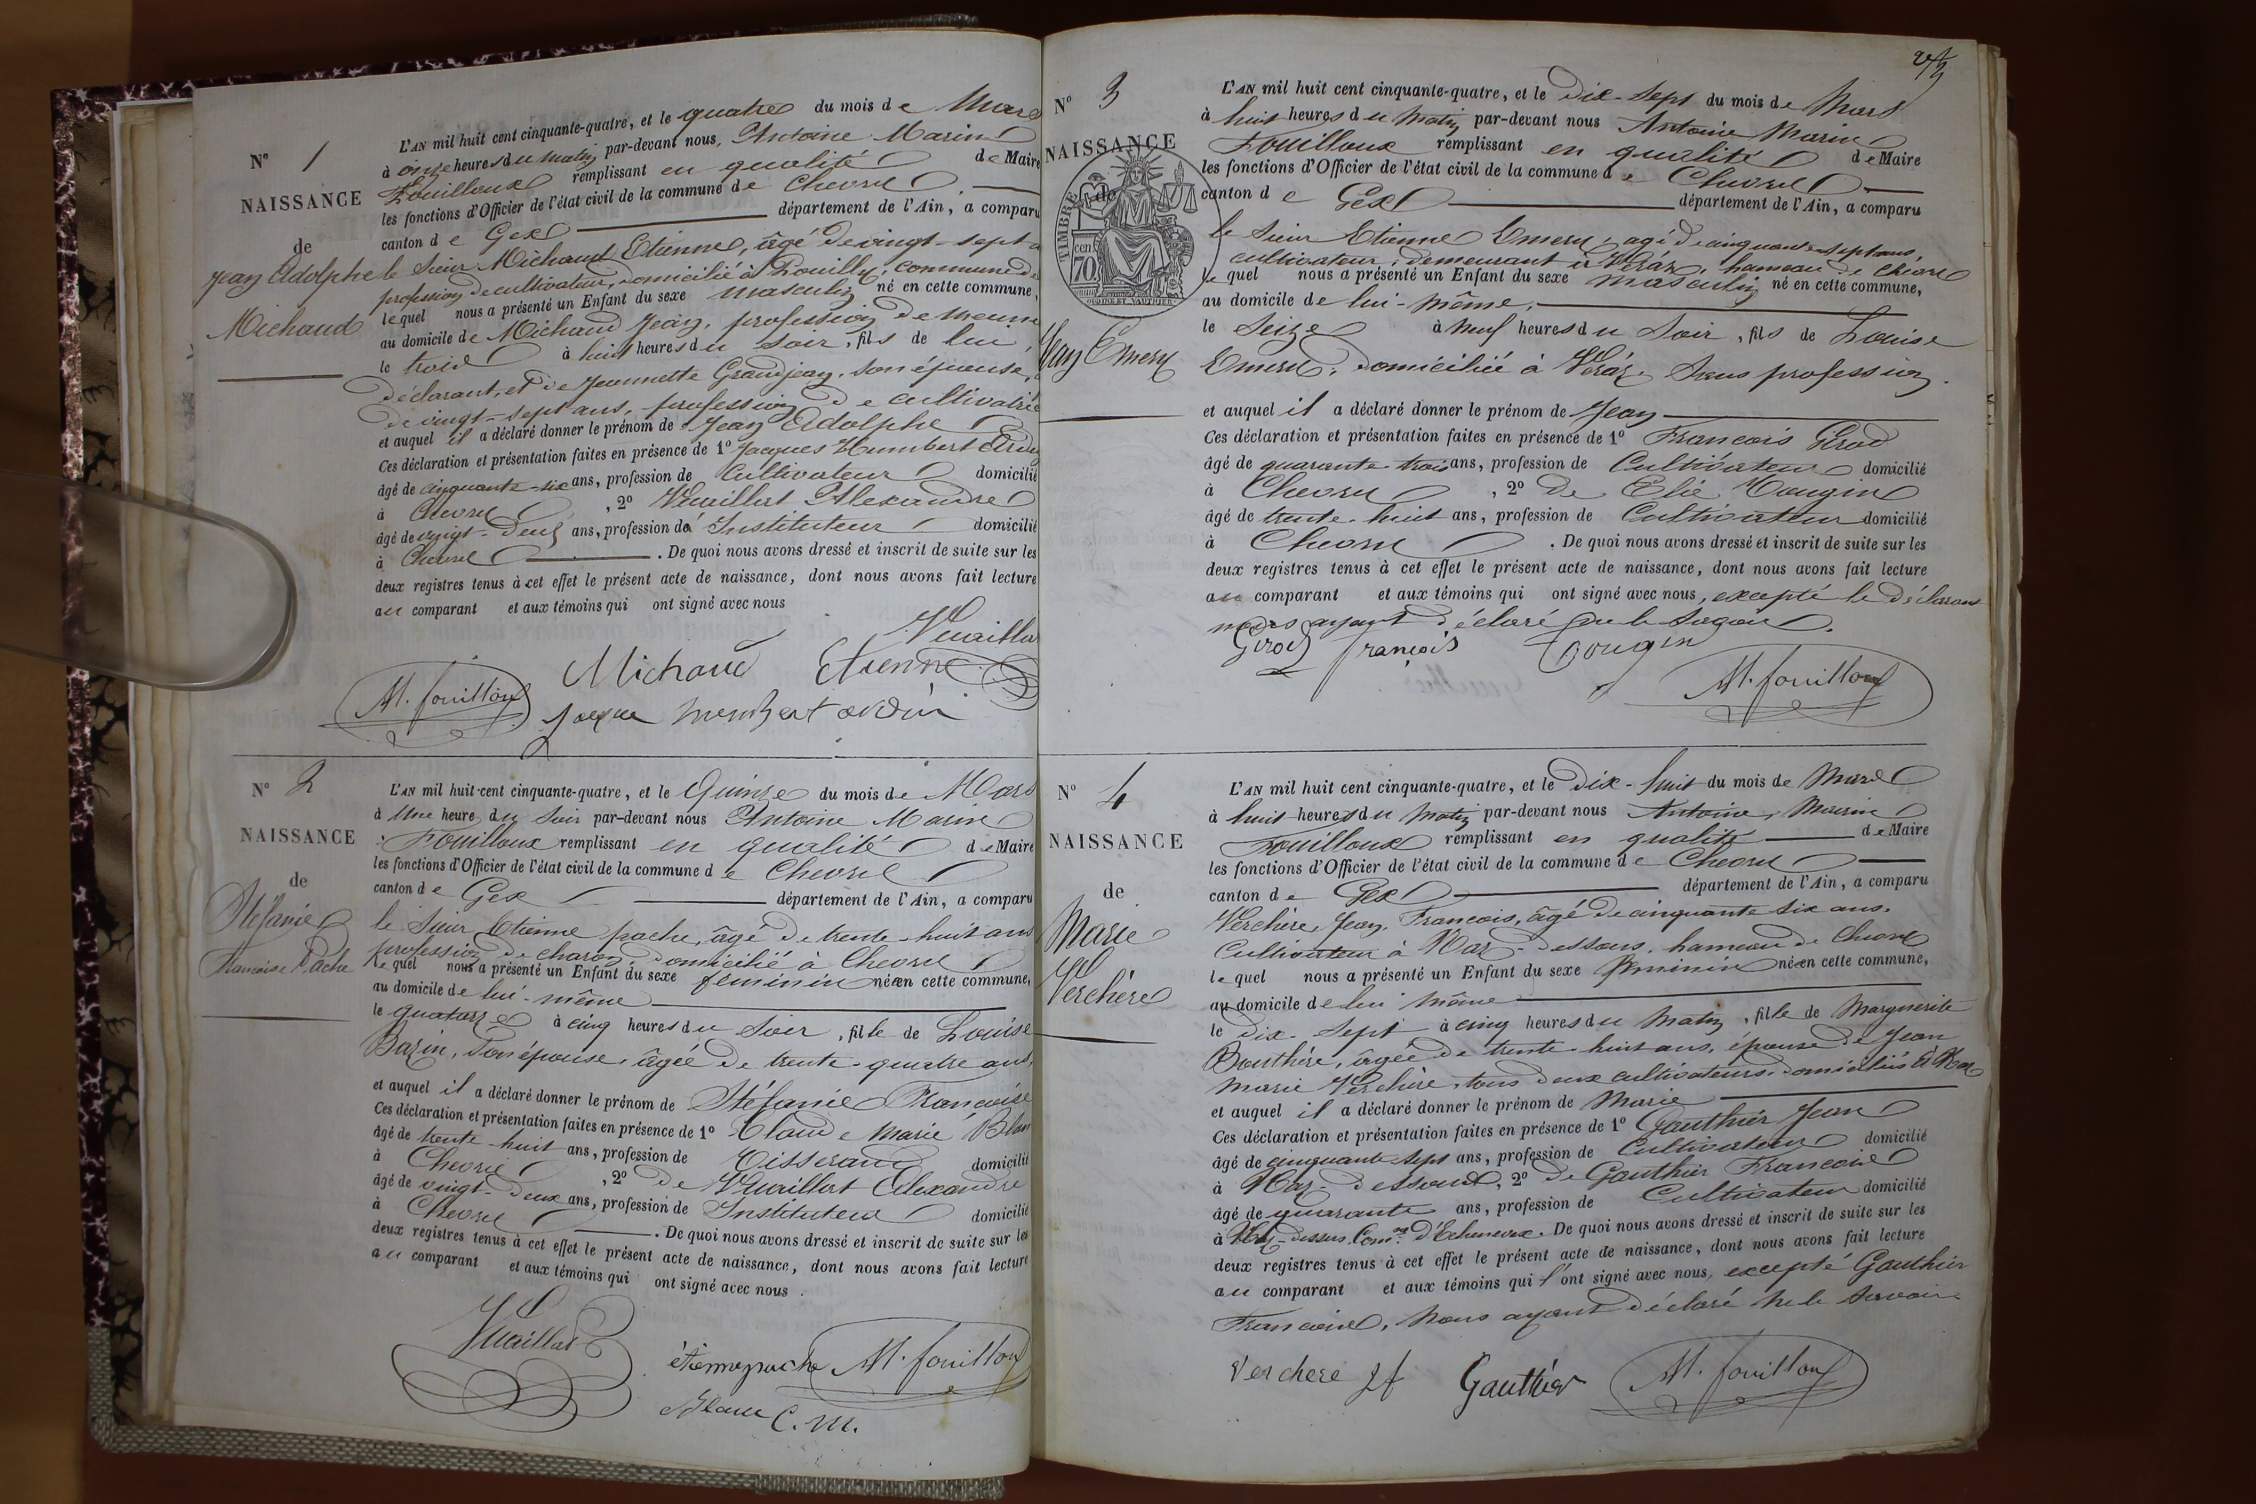 N° 1
NAISSANCE
de
Jean Adolphe
Michaud
L'AN mil huit cent cinquante-quatre, et le quatre du mois de Mars
à onze heures du matin par-devant nous, Antoine Marin
Fouilloux remplissant en qualité de Maire
les fonctions d'Officier de l'état civil de la commune de Chevry
canton de Gex département de l'Ain, a comparu
le Sieur Michaud Etienne, âgé de vingt-sept
profession de cultivateur, domicilié à Prouilly, commune de
lequel nous a présenté un Enfant du sexe masculin né en cette commune,
au domicile de Michaud Jean, profession de
le trois à huit heures du soir, fils de lui
déclarant, et de Jeannette Grandjean, son épouse,
de vingt-sept ans, profession de cultivatrice
et auquel il a déclaré donner le prénom de Jean Adolphe
Ces déclaration et présentation faites en présence de 1° Jacques Humbert
âgé de cinquante-six ans, profession de Cultivateur domicilié
à Chevry, 2° Vuaillat Alexandre
âgé de vingt-deux ans, profession de Instituteur domicilié
à Chevry. De quoi nous avons dressé et inscrit de suite sur les
deux registres tenus à cet effet le présent acte de naissance, dont nous avons fait lecture
au comparant et aux témoins qui ont signé avec nous
Vuaillat
Michaud Etienne
AM. fouilloux
N° 2
NAISSANCE
de
Stéfanie
Francoise Pache
L'AN mil huit-cent cinquante-quatre, et le Quinze du mois de Mars
à Une heure du Soir par-devant nous Antoine Marin
Fouilloux remplissant en qualité de Maire
les fonctions d'Officier de l'état civil de la commune de Chevry
canton de Gex département de l'Ain, a comparu
le Sieur Etienne pache, âgé de trente-huit ans
profession de charon, domicilié à Chevry
le quel nous a présenté un Enfant du sexe féminin née en cette commune,
au domicile de lui-même
le quatorze à cinq heures du Soir, fille de Louise
Bazin, son épouse, âgée de trente-quatre ans,
et auquel il a déclaré donner le prénom de Stéfanie Francoise
Ces déclaration et présentation faites en présence de 1° Claude Marie Blanc
âgé de trente-huit ans, profession de Tisserand domicilié
à Chevry, 2° de Vuaillat Alexandre
âgé de vingt-deux ans, profession de Instituteur domicilié
à Chevry. De quoi nous avons dressé et inscrit de suite sur les
deux registres tenus à cet effet le présent acte de naissance, dont nous avons fait lecture
au comparant et aux témoins qui ont signé avec nous.
Vuaillat
étienne pache AM. fouilloux
Blanc C. M.
N° 3
NAISSANCE
de
TIMBRE
cen
70
Jean Emery
L'AN mil huit cent cinquante-quatre, et le Dix-Sept du mois de Mars
à huit heures du Matin par-devant nous Antoine Marin
Fouilloux remplissant en qualité de Maire
les fonctions d'Officier de l'état civil de la commune de Chevry
canton de Gex département de l'Ain, a comparu
le Sieur Etienne Emery, agé de cinquante-sept ans,
cultivateur, demeurant à Véraz, hameau de Chevry
le quel nous a présenté un Enfant du sexe masculin né en cette commune,
au domicile de lui-même,
le Seize à Neuf heures du Soir, fils de Louise
Emery, domiciliée à Véraz, Sans profession.
et auquel il a déclaré donner le prénom de Jean
Ces déclaration et présentation faites en présence de 1° Francois Girod
âgé de quarante-trois ans, profession de Cultivateur domicilié
à Chevry, 2° de Elie Tougin
âgé de trente-huit ans, profession de Cultivateur domicilié
à Chevry. De quoi nous avons dressé et inscrit de suite sur les
deux registres tenus à cet effet le présent acte de naissance, dont nous avons fait lecture
au comparant et aux témoins qui ont signé avec nous, excepté le déclarant
nous ayant déclaré ne le Savoir.
Girod françois Tougin
AM. fouilloux
N° 4
NAISSANCE
de
Marie
Verchère
L'AN mil huit cent cinquante-quatre, et le Dix-huit du mois de Mars
à huit heures du Matin par-devant nous Antoine, Marin
Fouilloux remplissant en qualité de Maire
les fonctions d'Officier de l'état civil de la commune de Chevry
canton de Gex département de l'Ain, a comparu
Verchère, Jean, Francois, âgé de cinquante six ans.
Cultivateur à Naz-dessous, hameau de Chevry
le quel nous a présenté un Enfant du sexe féminin née en cette commune,
au domicile de lui même
le Dix-Sept à cinq heures du Matin, fille de Marguerite
Bouthère, âgée de trente-huit ans, épouse de Jean
Marie Verchère, tous deux cultivateurs, domiciliés à Naz
et auquel il a déclaré donner le prénom de Marie
Ces déclaration et présentation faites en présence de 1° Gauthier Jean
âgé de cinquante-sept ans, profession de Cultivateur domicilié
à Naz-dessous, 2° de Gauthier Francois
âgé de quarante ans, profession de Cultivateur domicilié
à Naz-dessus, Com.ne d'Echenevex. De quoi nous avons dressé et inscrit de suite sur les
deux registres tenus à cet effet le présent acte de naissance, dont nous avons fait lecture
au comparant et aux témoins qui l'ont signé avec nous, excepté Gauthier
Francois, nous ayant déclaré ne le Savoir
Verchere Jf Gauthier AM. fouilloux